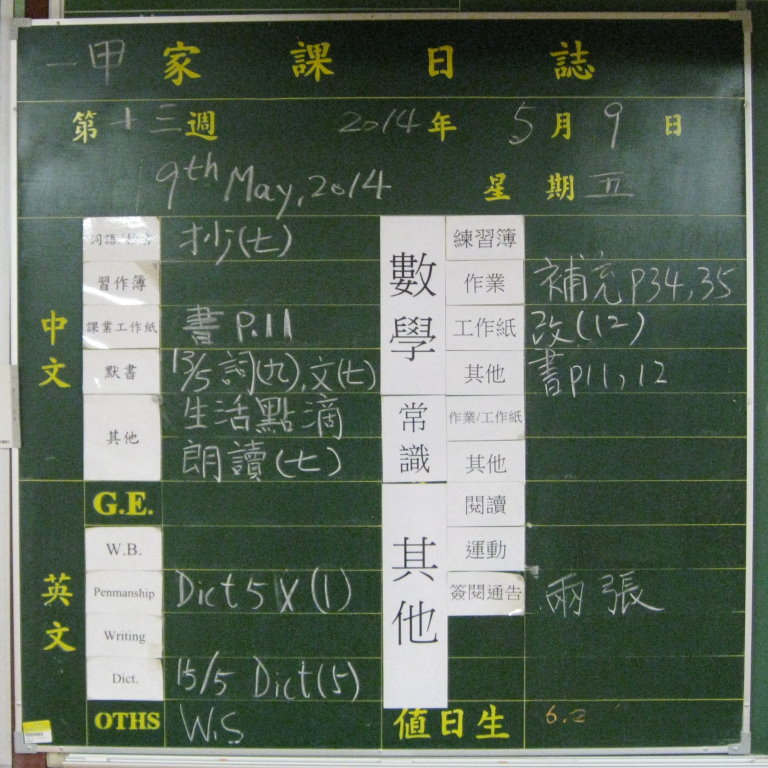 一甲家課日誌
第十三週 2014年 5月 9日
9th May, 2014 星期五
中文
抄(七)
習作簿
課業工作紙 書 P.11
默書 13/5 詞(九), 文(七)
其他 生活點滴
朗讀(七)
英文
G.E.
W.B.
Penmanship Dict 5 X (1)
Writing
Dict. 15/5 Dict(5)
OTHS W.S
數學
練習簿
作業 補充 P34, 35
工作紙 改(12)
其他 書 P11, 12
常識
作業/工作紙
其他
其他
閱讀
運動
簽閱通告 兩張
值日生 6.2